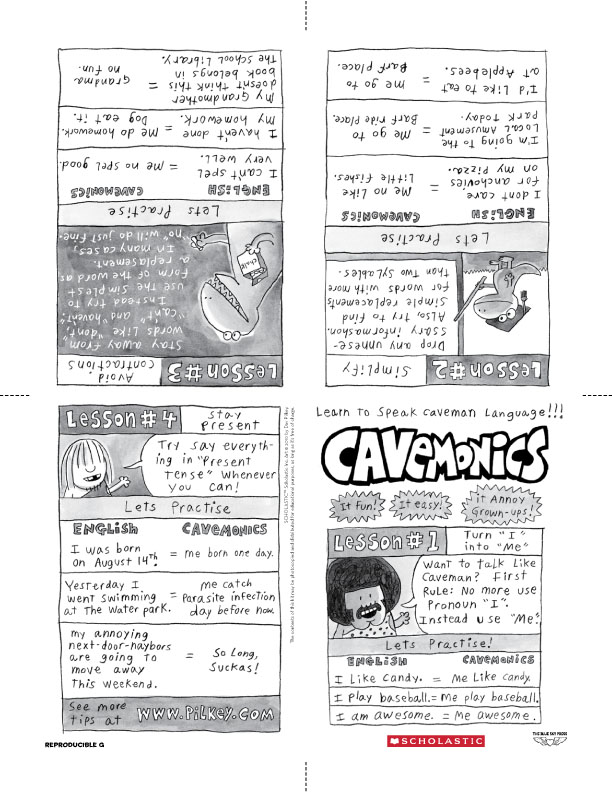 Lesson #3
Avoid
contractions
Stay away from
words like "dont",
"cant", and "havent".
Instead try to
use the simplest
form of the word as
a replasement.
In many cases,
"no" will do just fine.
chalk
Lets Practise
ENGLISH CAVEMONICS
I can't spell
very well. = me no spel good.
I haven't done
my homework. = me do homework.
Dog eat it.
My Grandmother
doesnt think this
book belongs in
the school Library. = grandma
no fun.
Lesson #2
Simplify
Drop any unnese-
ssary informashon.
Also, try to find
simple replasements
for words with more
than two sylables.
Lets Practise
ENGLISH CAVEMONICS
I dont care
for anchovies
on my pizza. = Me no Like
Little fishes.
I'm going to the
Local Amusement
Park today. = Me go to
Barf ride place.
I'd Like to eat
at Applebees. = me go to
Barf place.
Lesson #4
stay
present
Try say everyth-
ing in "Present
tense" whenever
you can!
Lets Practise
ENGLISH CAVEMONICS
I was born
on August 14th. = me born one day.
Yesterday I
went swimming
at the water park. = me catch
Parasite infection
day before now.
my annoying
next-door-naybors
are going to
move away
this weekend. = So Long,
Suckas!
See more
tips at www.Pilkey.com
SCHOLASTIC™ Scholastic Inc. Art © 2010 by Dav Pilkey.
The contents of this kit may be photocopied and distributed for educational purposes, so long as it is free of charge.
Learn to Speak caveman Language!!!
CAVEMONICS
It Fun!
It easy!
it Annoy
Grown-ups!
Lesson #1
Turn "I"
into "Me"
Want to talk Like
Caveman? First
Rule: No more use
Pronoun "I".
Instead use "Me".
Lets Practise!
ENGLISH CAVEMONICS
I Like candy. = Me Like candy.
I play baseball. = Me play baseball.
I am awesome. = Me awesome.
REPRODUCIBLE G
SCHOLASTIC
THE BLUE SKY PRESS